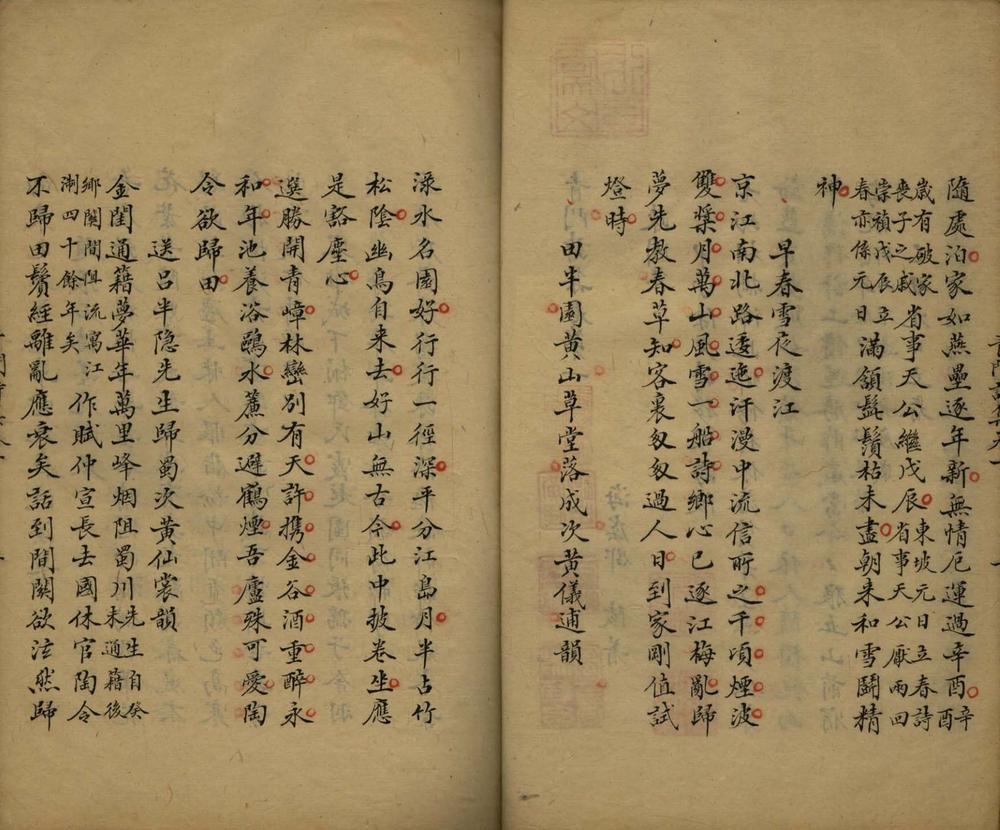 隨處泊家如燕壘逐年新無情厄運過辛酉辛酉
歲有破家
喪子之戚省事天公繼戊辰東坡元日立春詩
崇禎戊辰立省事天公厭兩回
春亦係元日滿頷髭鬚枯未盡朝来和雪鬪精
神
早春雪夜渡江
京江南北路逶迤汗漫中流信所之千頃煙波
雙槳月萬山風雪一船詩鄉心已逐江梅亂歸
夢先教春草知客裏匆匆過人日到家剛值試
燈時
田半園黄山草堂落成次黄儀逋韻
渌水名園好行行一徑深平分江島月半占竹
松陰幽鳥自来去好山無古今此中披卷坐應
是豁塵心
選勝開青嶂林巒別有天許攜金谷酒重醉永
和年池養浴鷗水簾分避鶴煙吾廬殊可愛陶
令欲歸田
送吕半隐先生歸蜀次黄仙裳韻
金閨通籍夢華年萬里峰烟阻蜀川先生自癸
未通籍後
鄉關間阻流寓江
淛四十餘年矣作賦仲宣長去國休官陶令
不歸田鬢經離亂應衰矣話到間關欲泫然歸